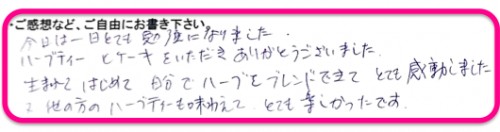 ご感想など、ご自由にお書き下さい。
今日は一日とても勉強になりました.
ハーブティーとケーキをいただきありがとうございました.
生まれてはじめて自分でハーブをブレンドできてとても感動しました
他の方のハーブティーも味わえて、とても楽しかったです.